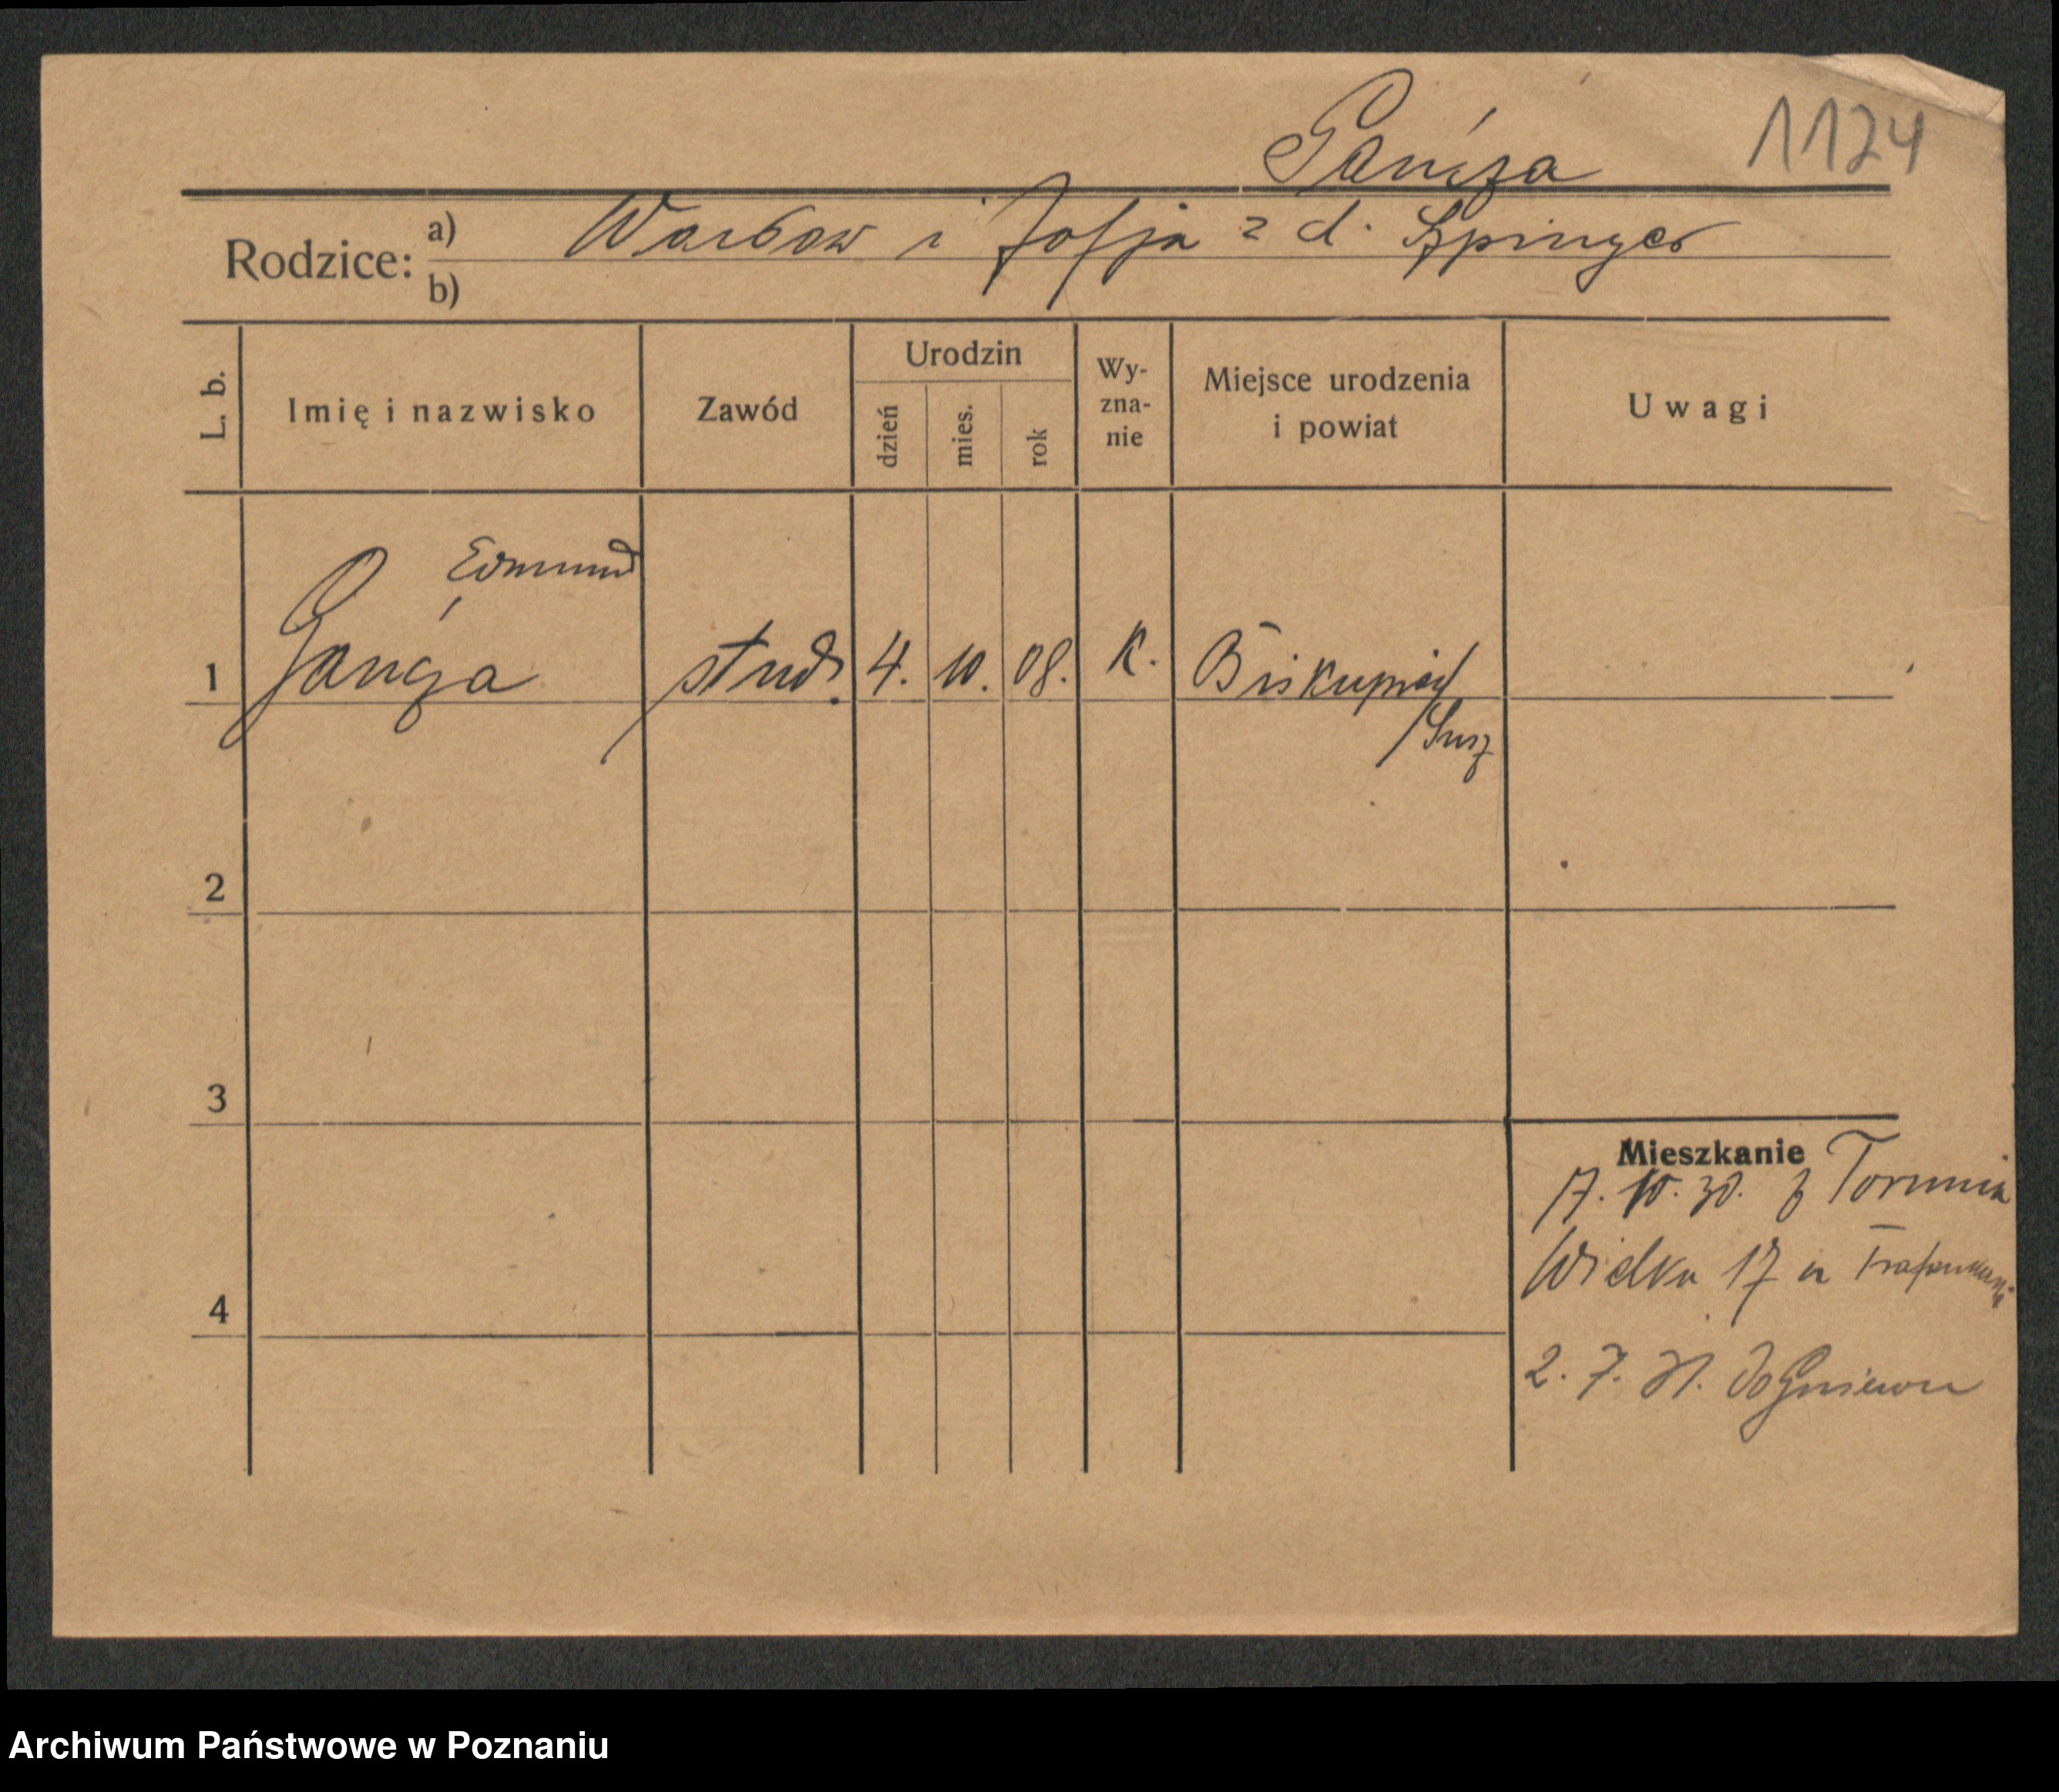 Gańcza
1124
Rodzice:
a) Wacław i Zofja z d. Szpinger
b)
L. b.
Imię i nazwisko
Zawód
Urodzin
dzień
mies.
rok
Wy-
zna-
nie
Miejsce urodzenia
i powiat
Uwagi
Edmund
1 Gańcza stud. 4. 10. 08. K. Biskupiec
/Susz
2
3
4
Mieszkanie
17. 10. 30. z Torunia
Wielka 17 u
2. 7. 31. do Gniewu
Archiwum Państwowe w Poznaniu